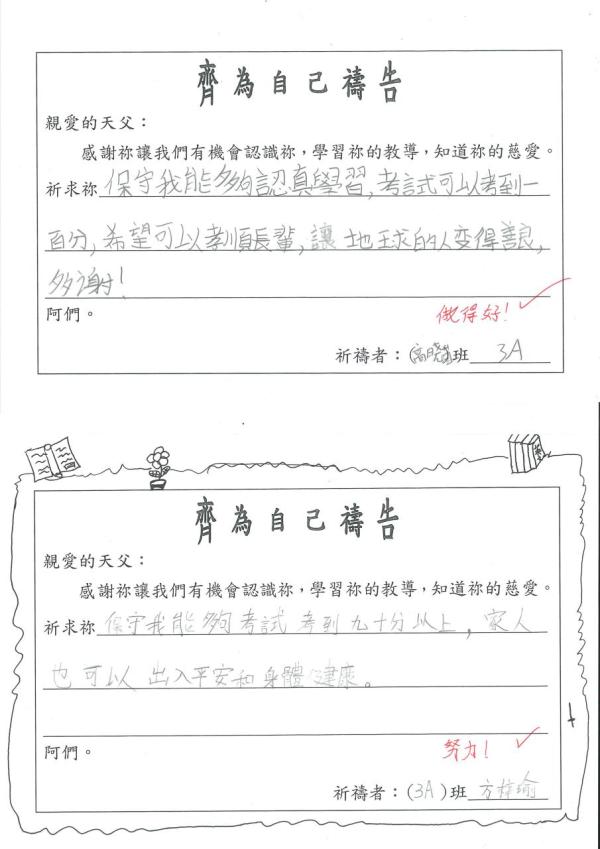 齊為自己禱告
親愛的天父：
感謝祢讓我們有機會認識祢，學習祢的教導，知道祢的慈愛。
祈求祢保守我能夠認真學習，考試可以考到一
百分，希望可以孝順長輩，讓地球的人变得善良，
多謝！
阿們。
做得好！
祈禱者：(高曉)班 3A
齊為自己禱告
親愛的天父：
感謝祢讓我們有機會認識祢，學習祢的教導，知道祢的慈愛。
祈求祢保守我能夠考試考到九十分以上，家人
也可以出入平安和身體健康。
阿們。
努力！
祈禱者：(3A)班 方梓瑜